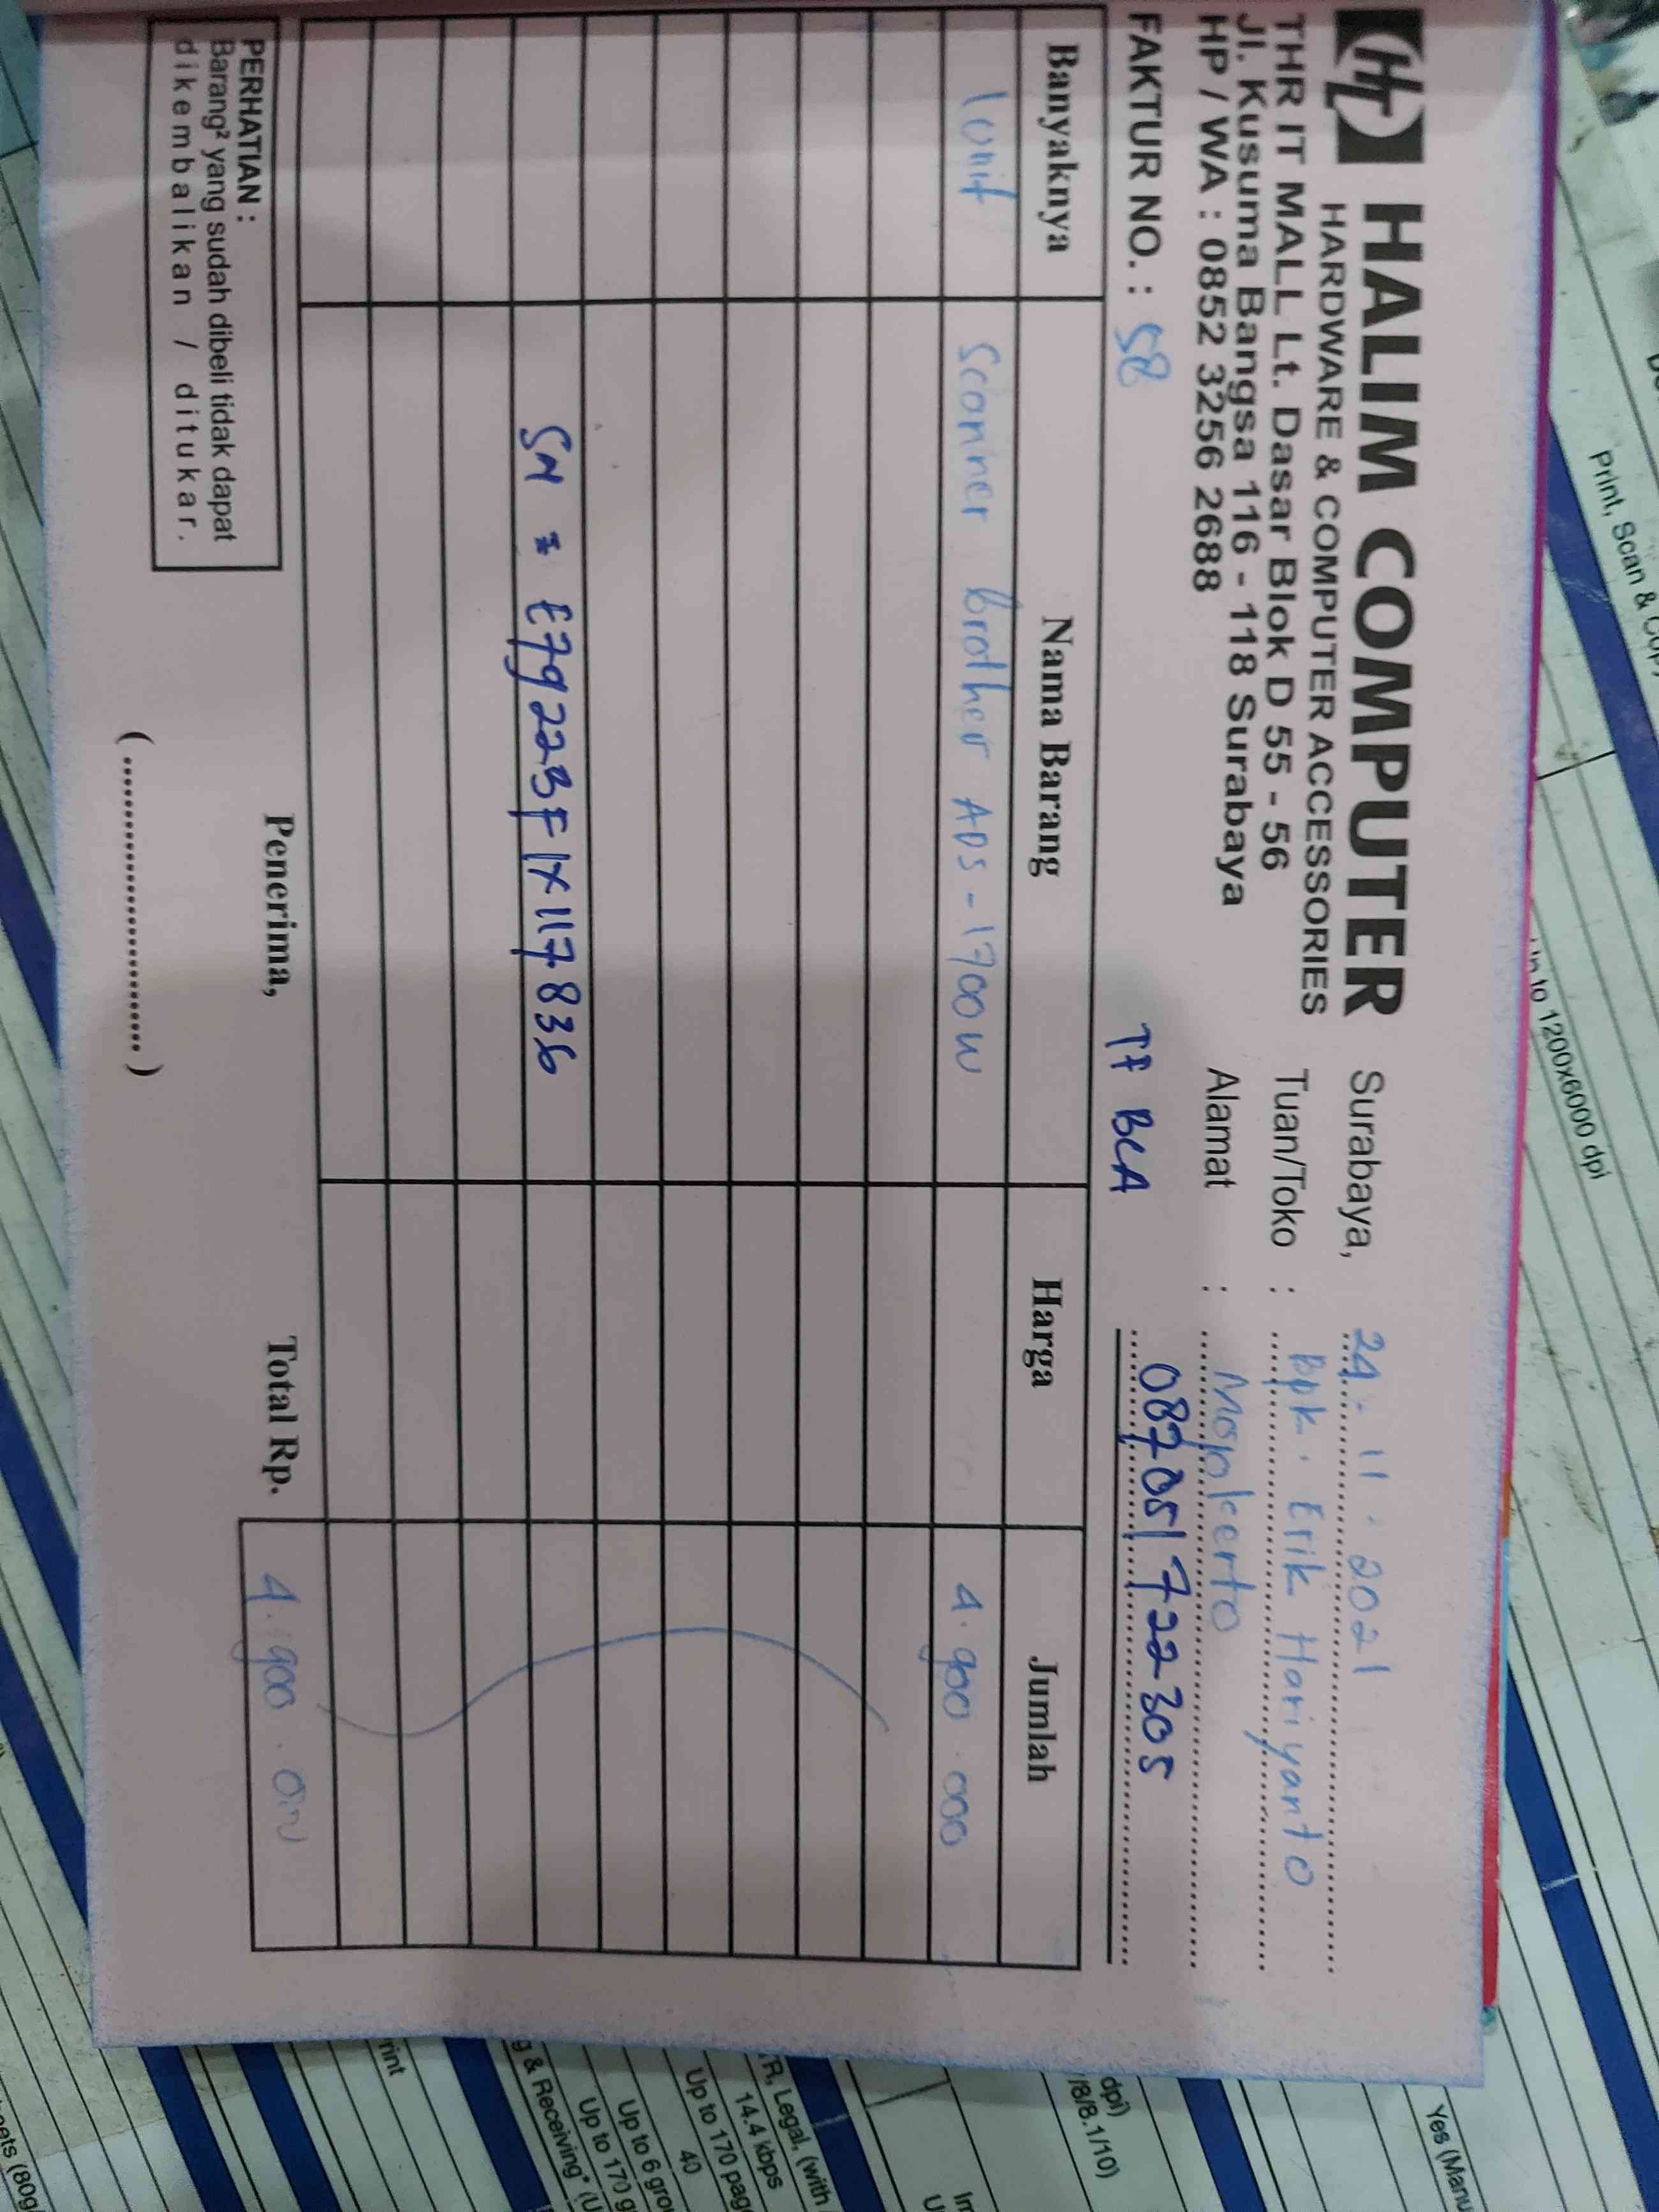 HT HALIM COMPUTER
HARDWARE & COMPUTER ACCESSORIES
THR IT MALL Lt. Dasar Blok D 55 - 56
Jl. Kusuma Bangsa 116 - 118 Surabaya
HP / WA : 0852 3256 2688
Surabaya, 24 - 11 - 2021
Tuan/Toko : Bpk. Erik Hariyanto
Alamat : Mojokerto
087051722305
FAKTUR NO. : 58 TF BCA
Banyaknya Nama Barang Harga Jumlah
1 unit Scanner brother ADS - 1700w 4.900.000
SN = E79223F1X117836
Total Rp. 4.900.000
PERHATIAN :
Barang² yang sudah dibeli tidak dapat
dikembalikan / ditukar.
Penerima,
(..............................)
Print, Scan & Copy
Up to 1200x6000 dpi
Yes (Manu
dpi)
/8/8.1/10)
R, Legal, (with
14.4 kbps
Up to 170 pag
40
Up to 6 grou
Up to 170
g & Receiving* (U
rint
ets (80g